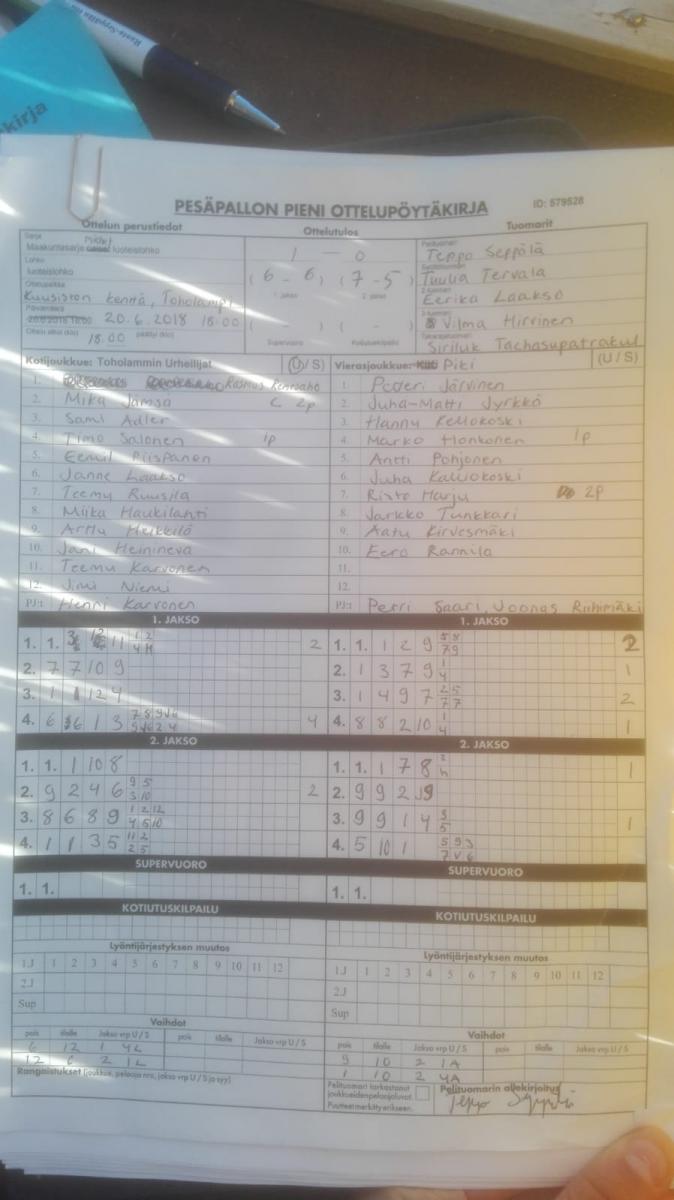 kirja
PESÄPALLON PIENI OTTELUPÖYTÄKIRJA
ID: 579528
Ottelun perustiedot
Ottelutulos
Tuomarit
Sarja
Maakuntasarja luoteislohko
Lohko
luoteislohko
Ottelupaikka
Kuusiston kenttä, Toholampi
Päivämäärä
20.6.2018 18:00
Ottelu alkoi (klo) päättyi (klo)
18.00
1 — 0
(6 - 6) (7 - 5)
1. jakso 2. jakso
( - ) ( - )
Supervuoro Kotiutuskilpailu
Pelituomari
Teppo Seppälä
Tuulia Tervala
2-tuomari
Eerika Laakso
3-tuomari
Vilma Hirvinen
Takarajatuomari
Siriluk Tachasupatrakul
Kotijoukkue: Toholammin Urheilijat (U/S)
1. Rasmus
2. Mika Jämsä C 2p
3. Sami Adler
4. Timo Salonen 1p
5. Eemil Piispanen
6. Janne Laakso
7. Teemu Ruusila
8. Miika Haukilahti
9. Arttu Heikkilä
10. Jani Heinineva
11. Teemu Karvonen
12. Jimi Niemi
PJ:t Henri Karvonen
Vierasjoukkue: Piki (U/S)
1. Petteri Järvinen
2. Juha-Matti Jyrkkä
3. Hannu Kellokoski
4. Marko Honkonen 1p
5. Antti Pohjonen
6. Juha Kalliokoski
7. Risto Harju 2p
8. Jarkko Tunkkari
9. Aatu Kirvesmäki
10. Eero Rannila
11.
12.
PJ:t Petri Saari, Joonas Riihimäki
1. JAKSO
1. 1. 11 2
2. 7 7 10 9
3. 1 1 12 4
4. 6 6 1 3 4
1. JAKSO
1. 1. 1 2 9 5 8 7 9 2
2. 1 3 7 9 1 4 1
3. 1 4 9 7 2 5 7 7 2
4. 8 8 2 10 1 4 1
2. JAKSO
1. 1. 1 10 8
2. 9 2 4 6 9 5 3 10 2
3. 8 6 8 9 1 2 12 4 5 10
4. 1 1 3 5 11 2 2 5
2. JAKSO
1. 1. 1 7 8 1
2. 9 9 2 9
3. 9 9 1 4 1
4. 5 10 1 5 9 3 7 V 6
SUPERVUORO
1. 1.
SUPERVUORO
1. 1.
KOTIUTUSKILPAILU
KOTIUTUSKILPAILU
Lyöntijärjestyksen muutos
1J 1 2 3 4 5 6 7 8 9 10 11 12
2J
Sup
Lyöntijärjestyksen muutos
1J 1 2 3 4 5 6 7 8 9 10 11 12
2J
Sup
Vaihdot
pois tilalle Jakso vrp U/S pois tilalle Jakso vrp U/S
6 12 1 4L
12 6 2 1L
Rangaistukset (joukkue, pelaaja nro, jakso vrp U/S ja syy)
Vaihdot
pois tilalle Jakso vrp U/S pois tilalle Jakso vrp U/S
9 10 2 1A
1 10 2 4A
Pelituomari tarkastanut
joukkueiden pelaajaluvat.
Puutteet merkitty erikseen.
Pelituomarin allekirjoitus
Teppo Seppälä